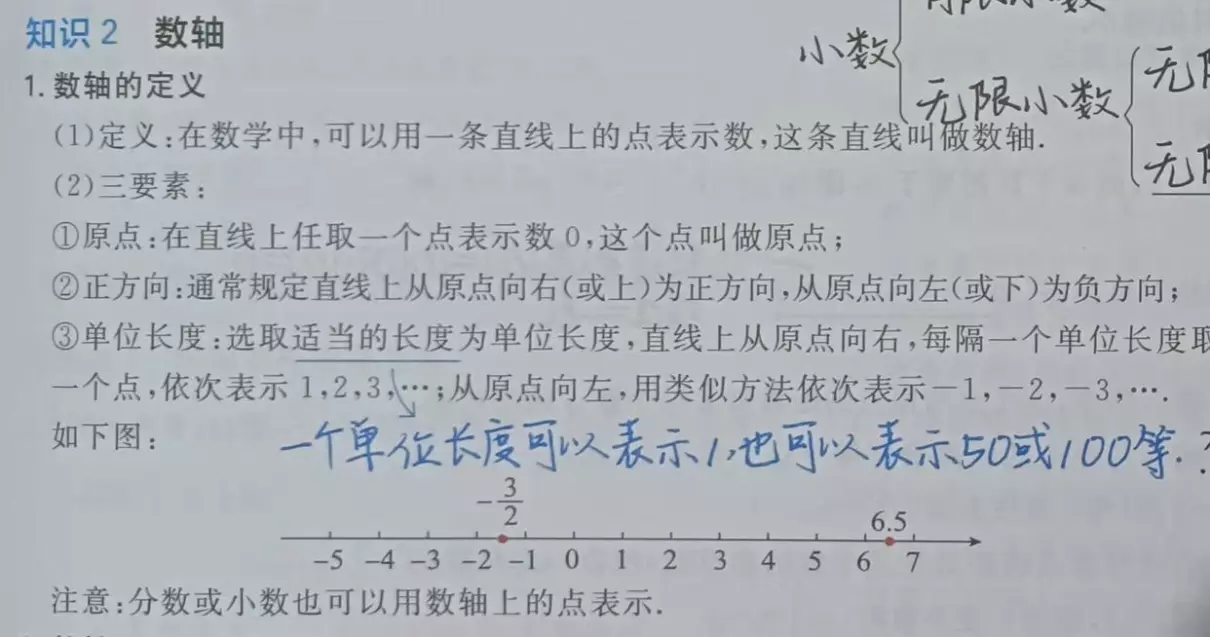 知识2 数轴
小数
无限小数
1.数轴的定义
(1)定义:在数学中,可以用一条直线上的点表示数,这条直线叫做数轴.
(2)三要素:
①原点:在直线上任取一个点表示数0,这个点叫做原点;
②正方向:通常规定直线上从原点向右(或上)为正方向,从原点向左(或下)为负方向;
③单位长度:选取适当的长度为单位长度,直线上从原点向右,每隔一个单位长度取
一个点,依次表示1,2,3,…;从原点向左,用类似方法依次表示-1,-2,-3,….
如下图:
一个单位长度可以表示1,也可以表示50或100等.
-3/2 6.5
-5 -4 -3 -2 -1 0 1 2 3 4 5 6 7
注意:分数或小数也可以用数轴上的点表示.